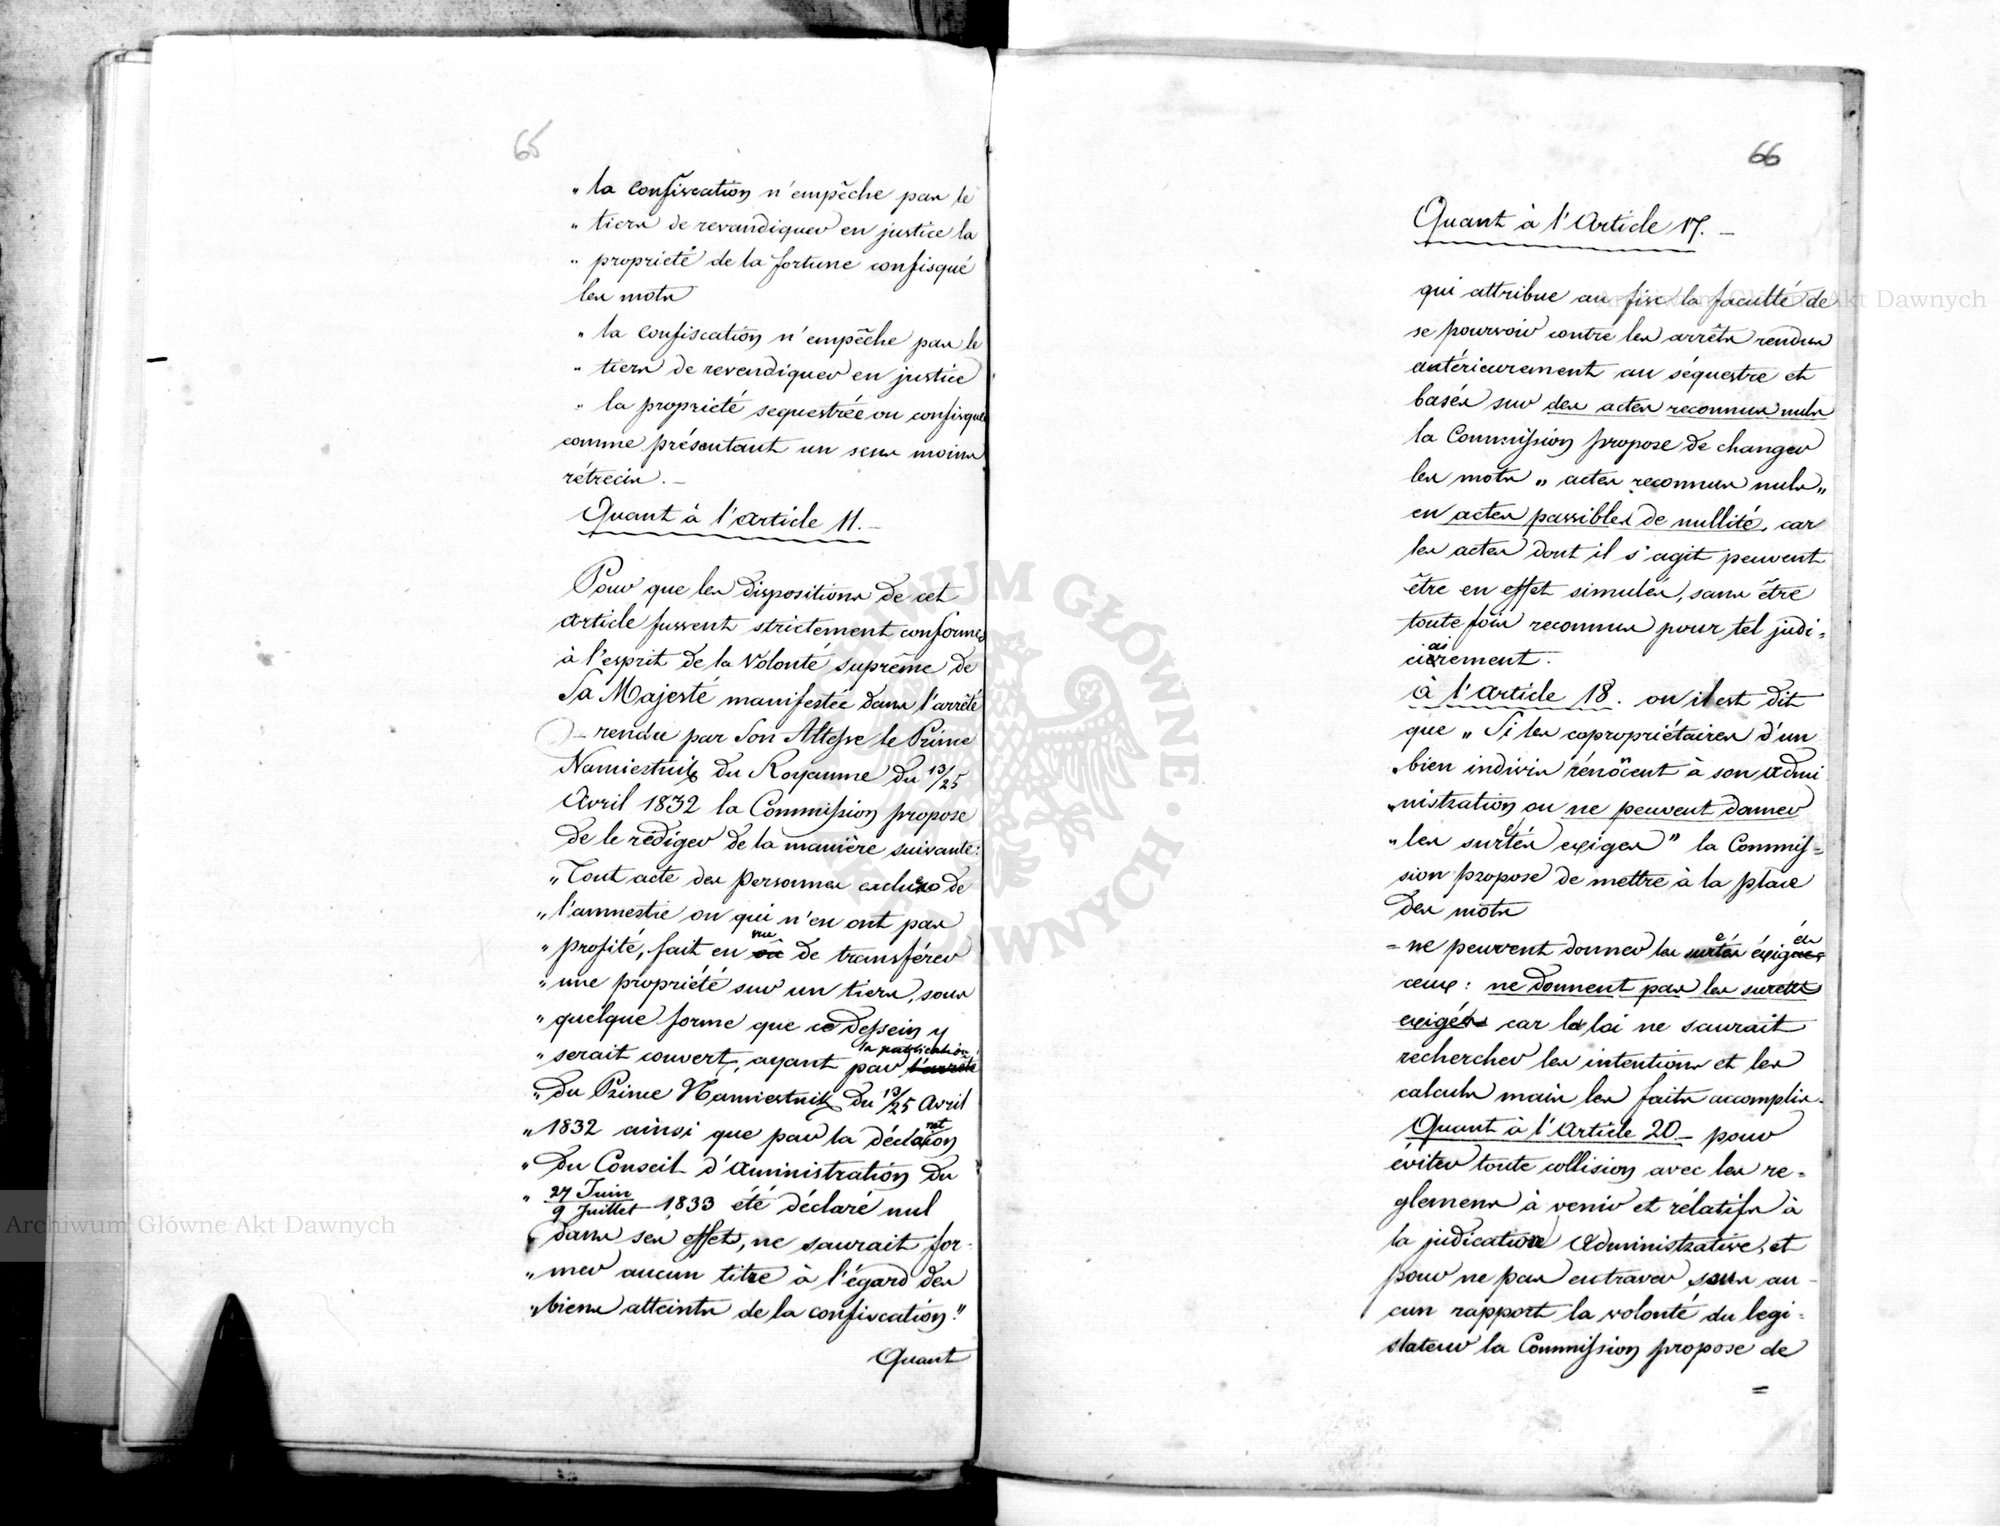 65
„ la confiscation n'empêche pas le
„ tiers de revandiquer en justice la
„ propriété de la fortune confisqué
les mots
„ la confiscation n'empêche pas le
„ tiers de revendiquer en justice
„ la propriété sequestrée ou confisquée
comme présentant un sens moins
rétrecis. —
Quant à l'article 11. —
Pour que les dispositions de cet
article fussent strictement conformes
à l'esprit de la Volonté suprême de
Sa Majesté manifestée dans l'arrêté
— rendu par Son Altesse le Prince
Namiestnik du Royaume du 13/25
Avril 1832 la Commission propose
de le rédiger de la manière suivante:
„ Tout acte des personnes exclues de
„ l'amnestie ou qui n'en ont pas
„ profité, fait en vue de transférer
„ une propriété sur un tiers, sous
„ quelque forme que ce dessein y
„ serait couvert, ayant par la publication l'arrêté
„ du Prince Namiestnik du 13/25 Avril
„ 1832 ainsi que par la déclaration
„ du Conseil d'Aministration du
„ 27 Juin / 9 Juillet 1833 été déclaré nul
dans ses effets, ne saurait for-
„ mer aucun titre à l'égard des
„ biens atteints de la confiscation."
Quant
66
Quant à l'Article 17. —
qui attribue au fisc la faculté de
se pourvoir contre les arrêts rendus
antérieurement au séquestre et
basés sur des actes reconnus nuls
la Commission propose de changer
les mots „ actes reconnus nuls „
en actes passibles de nullité, car
les actes dont il s'agit peuvent
être en effet simulés, sans être
toute fois reconnus pour tel judi-
ciairement.
à l'article 18. ou il est dit
que „ Si les copropriétaires d'un
„ bien indivis rénoncent à son admi
„ nistration ou ne peuvent donner
„ les surtés exiges" la Commis-
sion propose de mettre à la place
des mots
= ne peuvent donner les suretés éxigées
ceux: ne donnent pas les suretés
exigés car la loi ne saurait
rechercher les intentions et les
calculs mais les faits accomplis.
Quant à l'Article 20 — pour
éviter toute collision avec les re-
glemens à venir et rélatifs à
la judicature Administrative, et
pour ne pas entraver sous au-
cun rapport la volonté du legi-
slateur la Commission propose de
=
Archiwum Główne Akt Dawnych
Archiwum Główne Akt Dawnych
ARCHIWUM GŁÓWNE · AKT DAWNYCH ·